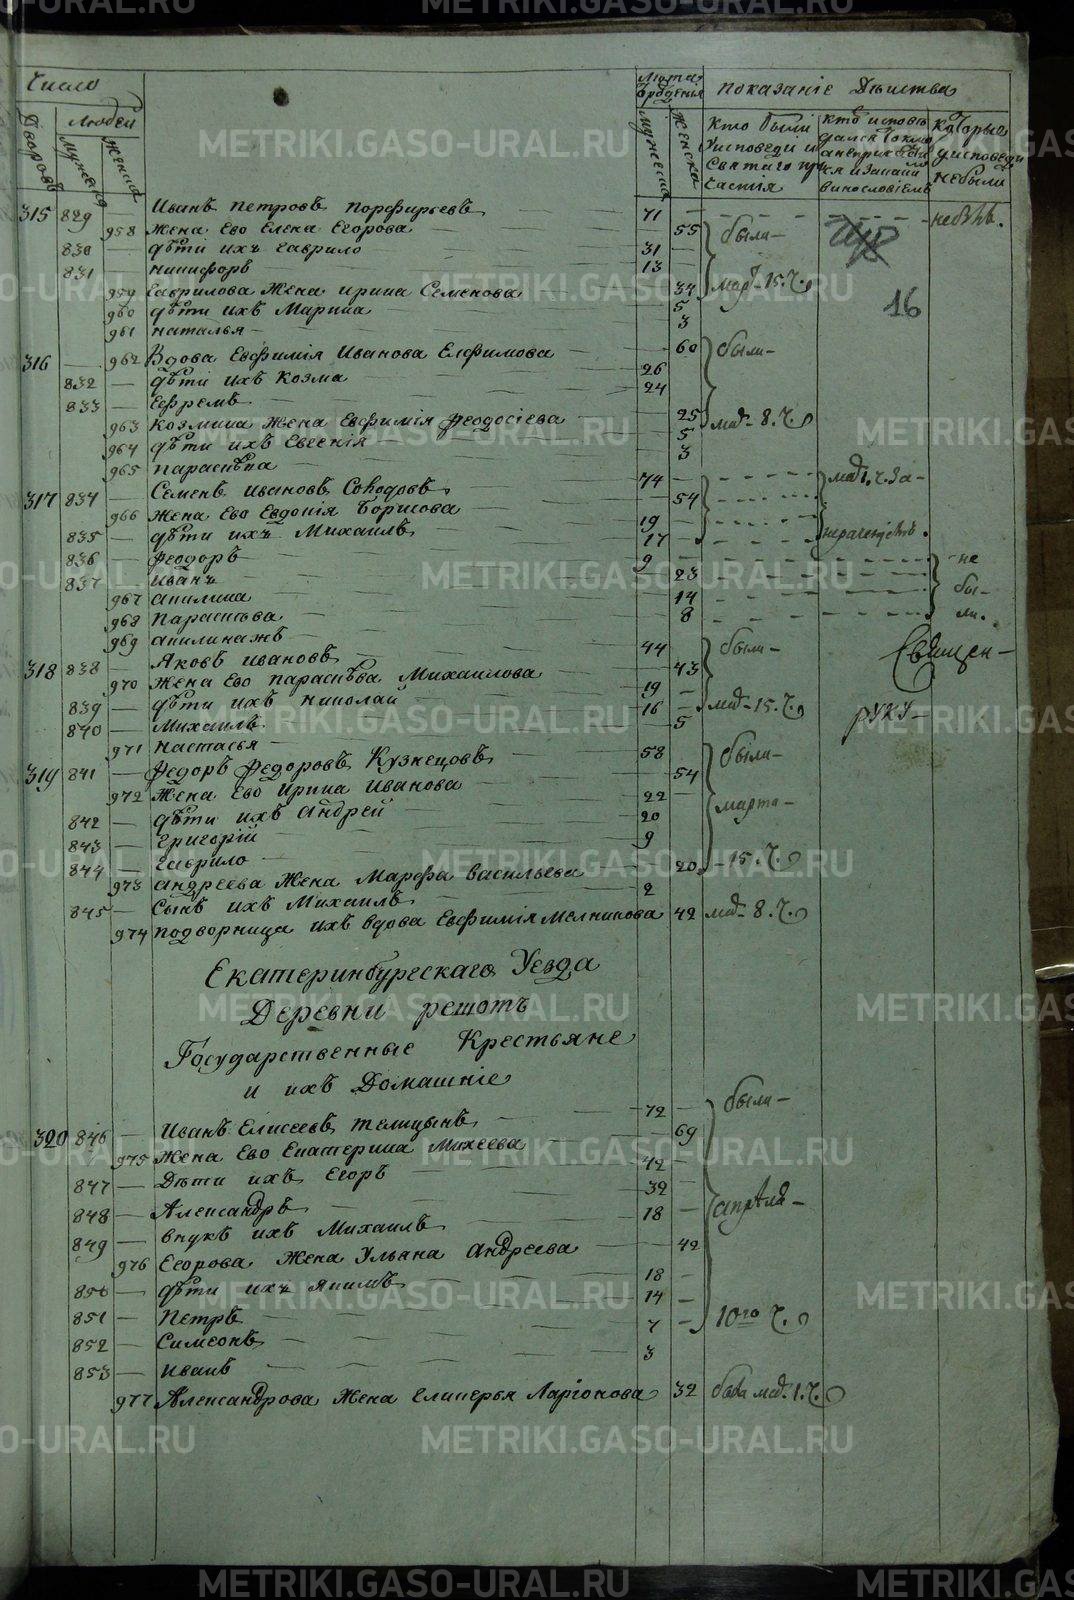 Число
Дворовъ
Людей
Мужеска
Женска
Лѣта
Мужеска
Женска
Показаніе Дѣиства
Кто были
У исповеди и
Святаго при
частія
Которые
у исповеди
небыли
315 829 — Иванъ Петровъ Порфирьевъ 71 —
958 Жена Ево Елена Егорова — 55 были —
830 — дѣти ихъ Гаврило 31 —
831 — Никифоръ 13 —
959 Гаврилова Жена Ирина Семенова — 34 мар. 15. ч.
960 дѣти ихъ Марина 5
961 Наталья 3
16
316 — 962 Вдова Евфимія Иванова Елфимова — 60 были —
832 — дѣти ихъ Козма 26
833 — Ефремъ 24
963 Козмина Жена Евфимія Феодосіева — 25 мар. 8. ч.
964 дѣти ихъ Евгенія 5
965 Парасковья 3
317 834 — Семенъ Ивановъ 74 —
966 Жена Ево Евдокія Борисова — 54
835 — дѣти ихъ Михаилъ 19 —
836 — Феодоръ 17 —
837 — Иванъ 9 — не
967 Акилина 23 бы-
968 Парасковья 14 ли.
969 8
318 838 — Яковъ Ивановъ 44 — были —
970 Жена Ево Михаилова — 43
839 — дѣти ихъ Николай 19 —
840 — Михаилъ 16 — мар. 15. ч.
971 Настасья 5
Священ —
руку —
319 841 — Федоръ Федоровъ Кузнецовъ 58 были —
972 Жена Ево Ирина Иванова — 54
842 — дѣти ихъ Андрей 22 — марта —
843 — Григорій 20
844 — Гаврило 9
973 Андреева Жена Марфа Васильева 20 — 15. ч.
845 — Сынъ ихъ Михаилъ 2
974 Подворница ихъ вдова Евфимія Мелникова 42 мар. 8. ч.
Екатеринбургскаго Уезда
Деревни решотъ
Государственные Крестьяне
и ихъ Домашніе
320 846 — Иванъ Елисеевъ Телицынъ 72 — были —
975 Жена Ево Екатерина Михеева — 69
847 — Дѣти ихъ Егоръ 42 —
848 — Александръ 39 — апреля —
849 — внукъ ихъ Михаилъ 18 —
976 Егорова Жена Ульяна Андреева — 42
850 — дѣти ихъ Якимъ 18 —
851 — Петръ 14 —
852 — Симеонъ 7 — 10го ч.
853 — Иванъ 3
977 Александрова Жена Гликерья Ларіонова 32 была мар. 1. ч.
METRIKI.GASO-URAL.RU